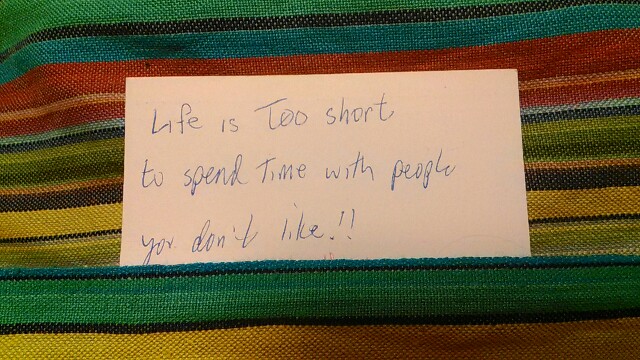 Life is Too short
to spend Time with people
you don't like!!